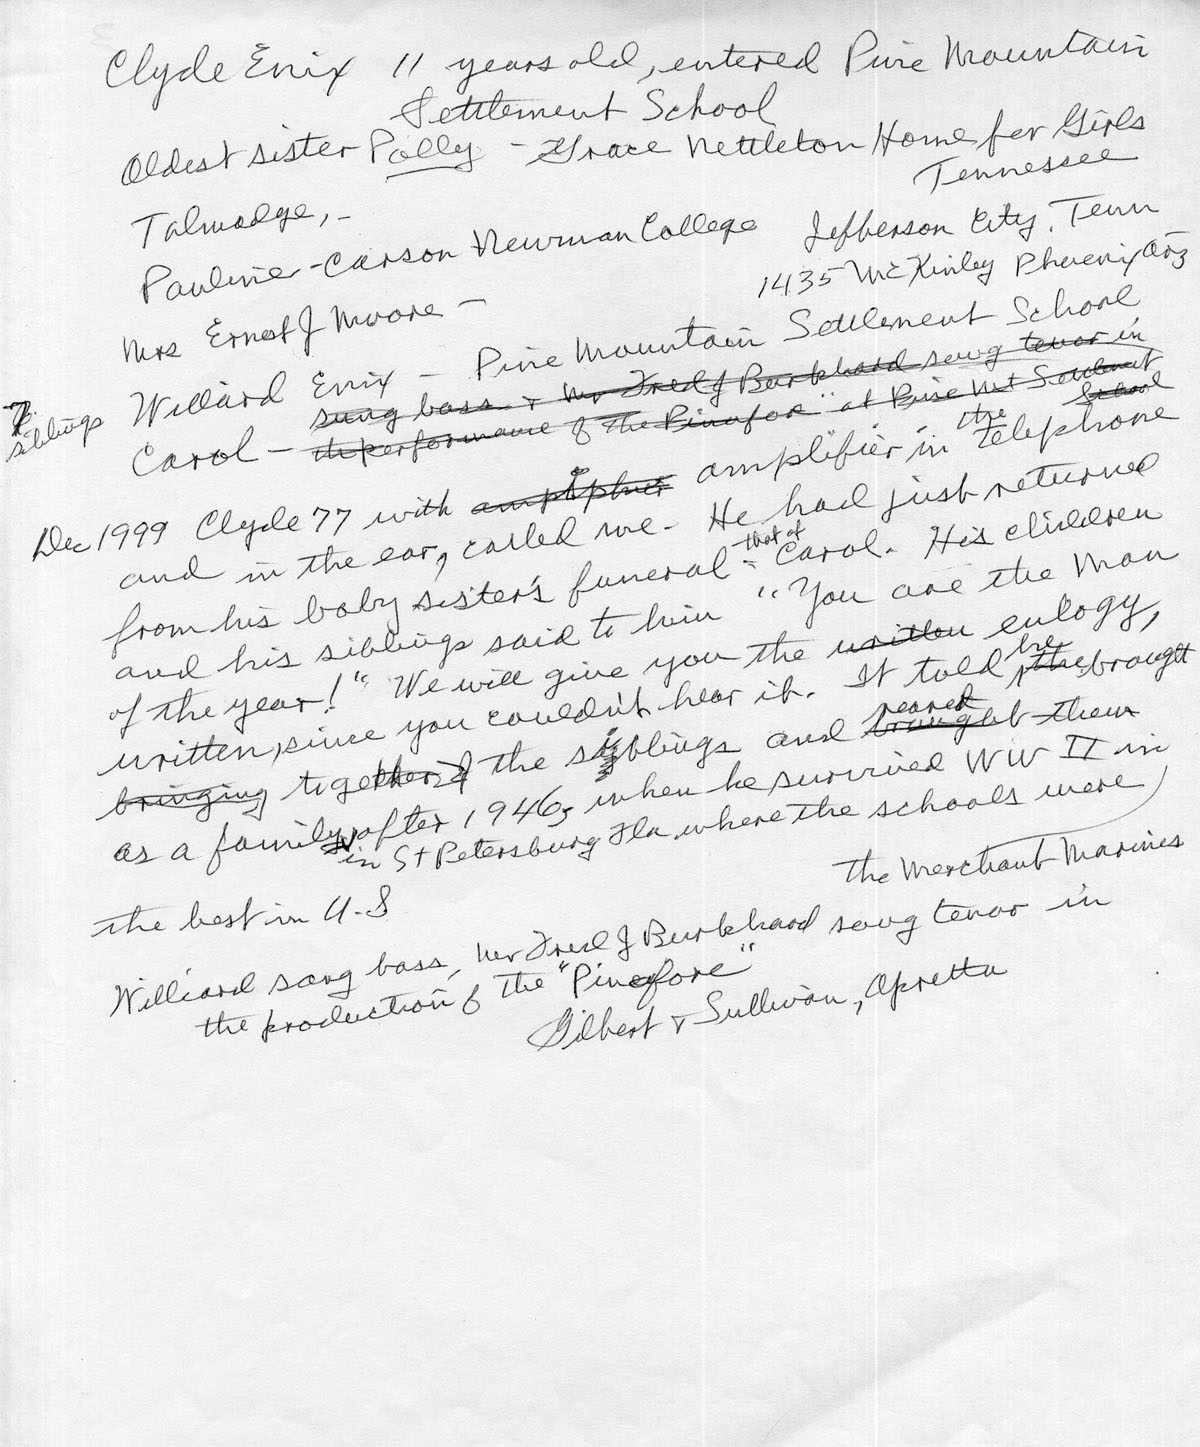 Clyde Enix 11 years old, entered Pine Mountain
Settlement School
Oldest sister Polly - Grace Nettleton Home for Girls
Tennessee
Talmadge, -
Pauline - Carson Newman College Jefferson City, Tenn
Mrs Ernest J Moore - 1435 McKinley Phoenix Ariz
7 siblings
Willard Enix - Pine Mountain Settlement School
sung bass & Mr Fred J Burkhard sowg tenor in
Carol - the performance of the Pinafore" at Pine Mt Settlement School
Dec 1999 Clyde 77 with amplifier in the telephone
and in the ear, called me. He had just returned
from his baby sister's funeral - that of Carol. His children
and his siblings said to him "You are the Man
of the year!" We will give you the written eulogy,
written, since you couldn't hear it. It told he the brought
bringing together the siblings and reared brought them
as a family after 1946, when he survived WW II in
the Merchant Marines
in St Petersburg Fla where the schools were
the best in U.S
Williard sang bass, Mr Fred J Burkhard sowg tenor in
the production of the "Pinafore"
Gilbert & Sullivan, Opretta